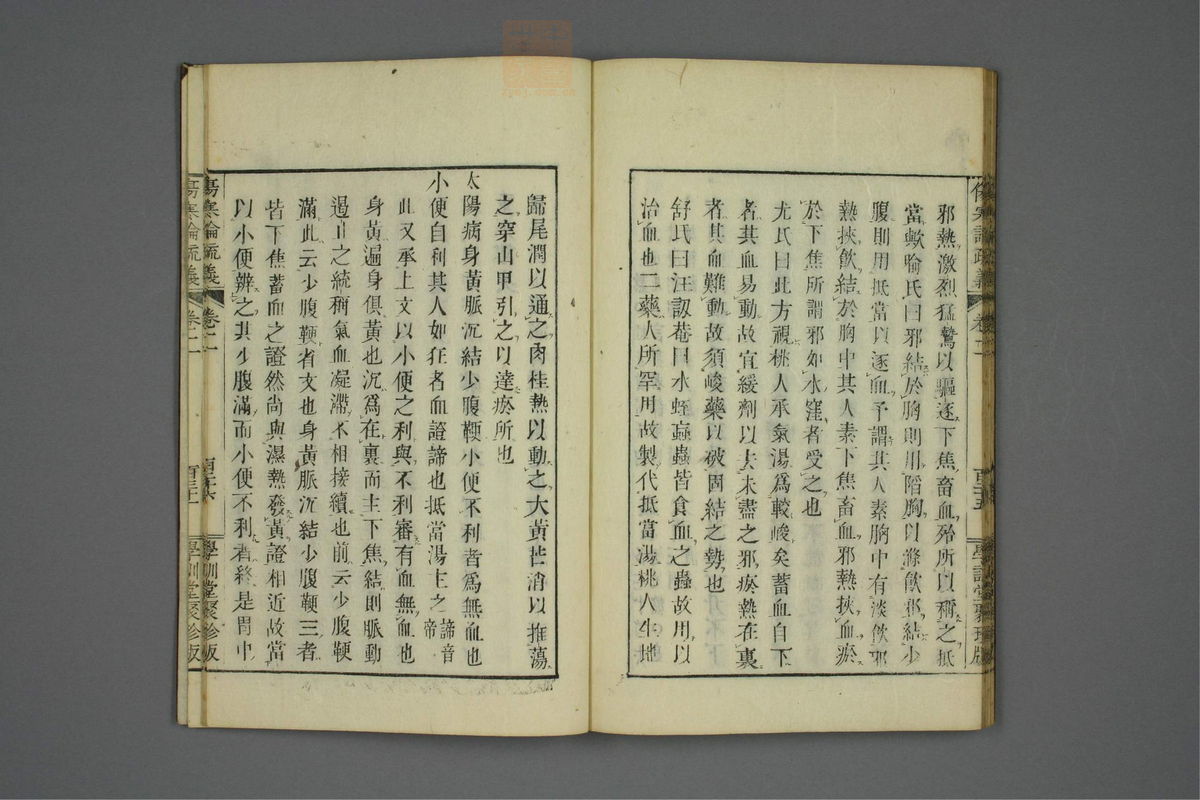 邪熱激烈猛鷙以驅逐下焦畜血殆所以稱之抵
當歟喻氏曰邪結於胸則用陷胸以滌飮邪結少
腹則用抵當以逐血予謂其人素胸中有淡飮邪
熱挾飮結於胸中其人素下焦畜血邪熱挾血瘀
於下焦所謂邪如水窪者受之也
尤氏曰此方視桃人承氣湯爲較峻矣蓄血自下
者其血易動故宜緩劑以去未盡之邪瘀熱在裏
者其血難動故須峻藥以破固結之勢也
舒氏曰汪訒菴曰水蛭蝱蟲皆食血之蟲故用以
治血也二藥人所罕用故製代抵當湯桃人生地
歸尾潤以通之肉桂熱以動之大黃芒消以推蕩
之穿山甲引之以達瘀所也
太陽病身黃脈沉結少腹鞕小便不利者爲無血也
小便自利其人如狂者血證諦也抵當湯主之 諦音帝
此又承上文以小便之利與不利審有血無血也
身黃遍身俱黃也沉爲在裏而主下焦結則脈動
遏止之統稱氣血凝滯不相接續也前云少腹鞕
滿此云少腹鞕省文也身黃脈沉結少腹鞕三者
皆下焦蓄血之證然尚與濕熱發黃證相近故當
以小便辨之其少腹滿而小便不利者終是胃中
傷寒論疏義 卷二 百三十六 學訓堂聚珍版